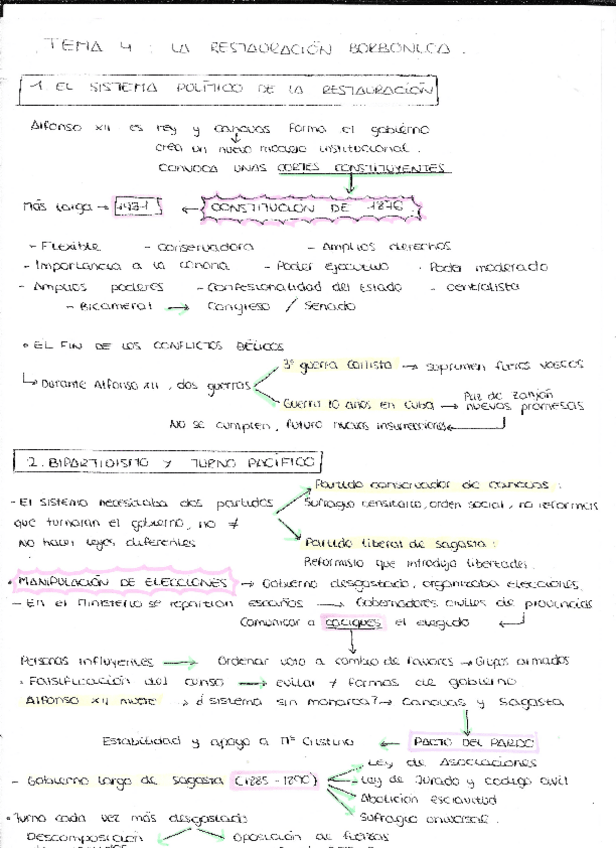 TEMA 4 : LA RESTAURACIÓN BORBÓNICA.
1. EL SISTEMA POLÍTICO DE LA RESTAURACIÓN
Alfonso XII es rey y Canovas forma el gobierno
crea un nuevo modelo institucional.
CONVOCA UNAS CORTES CONSTITUYENTES
Más larga → ← CONSTITUCIÓN DE 1876
- Flexible - conservadora - Amplios derechos
- Importancia a la corona - Poder ejecutivo · Poder moderado
- Amplios poderes - Confesionalidad del Estado - centralista
- Bicameral → Congreso / Senado
• EL FIN DE LOS CONFLICTOS BÉLICOS
3ª guerra carlista → suprimen fueros vascos
↳ Durante Alfonso XII, dos guerras
Guerra 10 años en Cuba → Paz de Zanjón nuevas promesas
NO se cumplen, futuro nuevas insurrecciones ←
2. BIPARTIDISMO Y TURNO PACÍFICO
Partido conservador de canovas :
- El sistema necesitaba dos partidos Sufragio censitario, orden social, no reformas
que turnaran el gobierno, no ≠
no hacer leyes diferentes Partido liberal de sagasta :
Reformista que introdujo libertades.
• MANIPULACIÓN DE ELECCIONES → Gobierno desgastado, organizaba elecciones.
- En el Ministerio se repartían escaños → Gobernadores civiles de provincias
Comunicar a caciques el elegido ←
Personas influyentes → Ordenar voto a cambio de favores → Grupos armados
• Falsificación del censo → evitar ≠ formas de gobierno
Alfonso XII muere → ¿ sistema sin monarca? → Canovas y Sagasta
Estabilidad y apoyo a Mª Cristina ← PACTO DEL PARDO
Ley de Asociaciones
- Gobierno largo de Sagasta (1885 - 1890) Ley de Jurado y codigo civil
Abolición esclavitud
Sufragio universal.
• Turno cada vez más desgastado
Descomposición Oposición de fuerzas